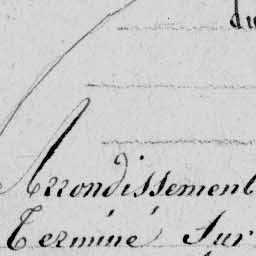 du
Arrondissement
Terminé sur